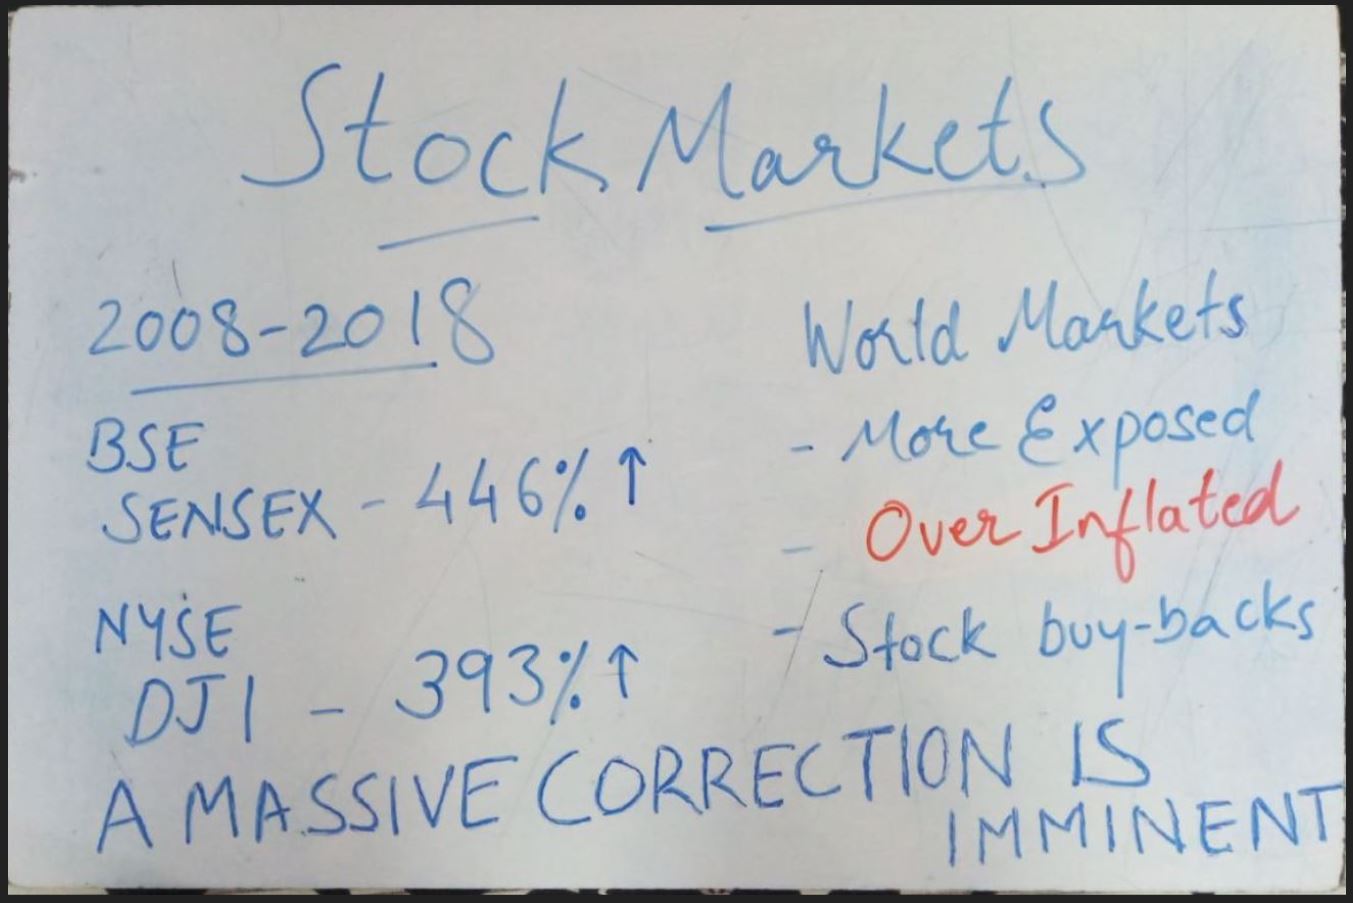 Stock Markets
2008-2018
BSE
SENSEX - 446% ↑
NYSE
DJI - 393% ↑
World Markets
- More Exposed
- Over Inflated
- Stock buy-backs
A MASSIVE CORRECTION IS
IMMINENT